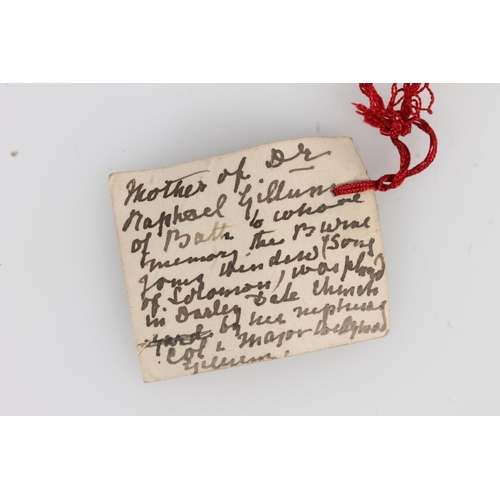 Mother of Dr
Raphael Gillum
of Bath to whose
memory the Burne
Jones window (Song
of Solomon) was placd
in Darley Dale Church
yard by her nephews
Col & Major
Gillum.